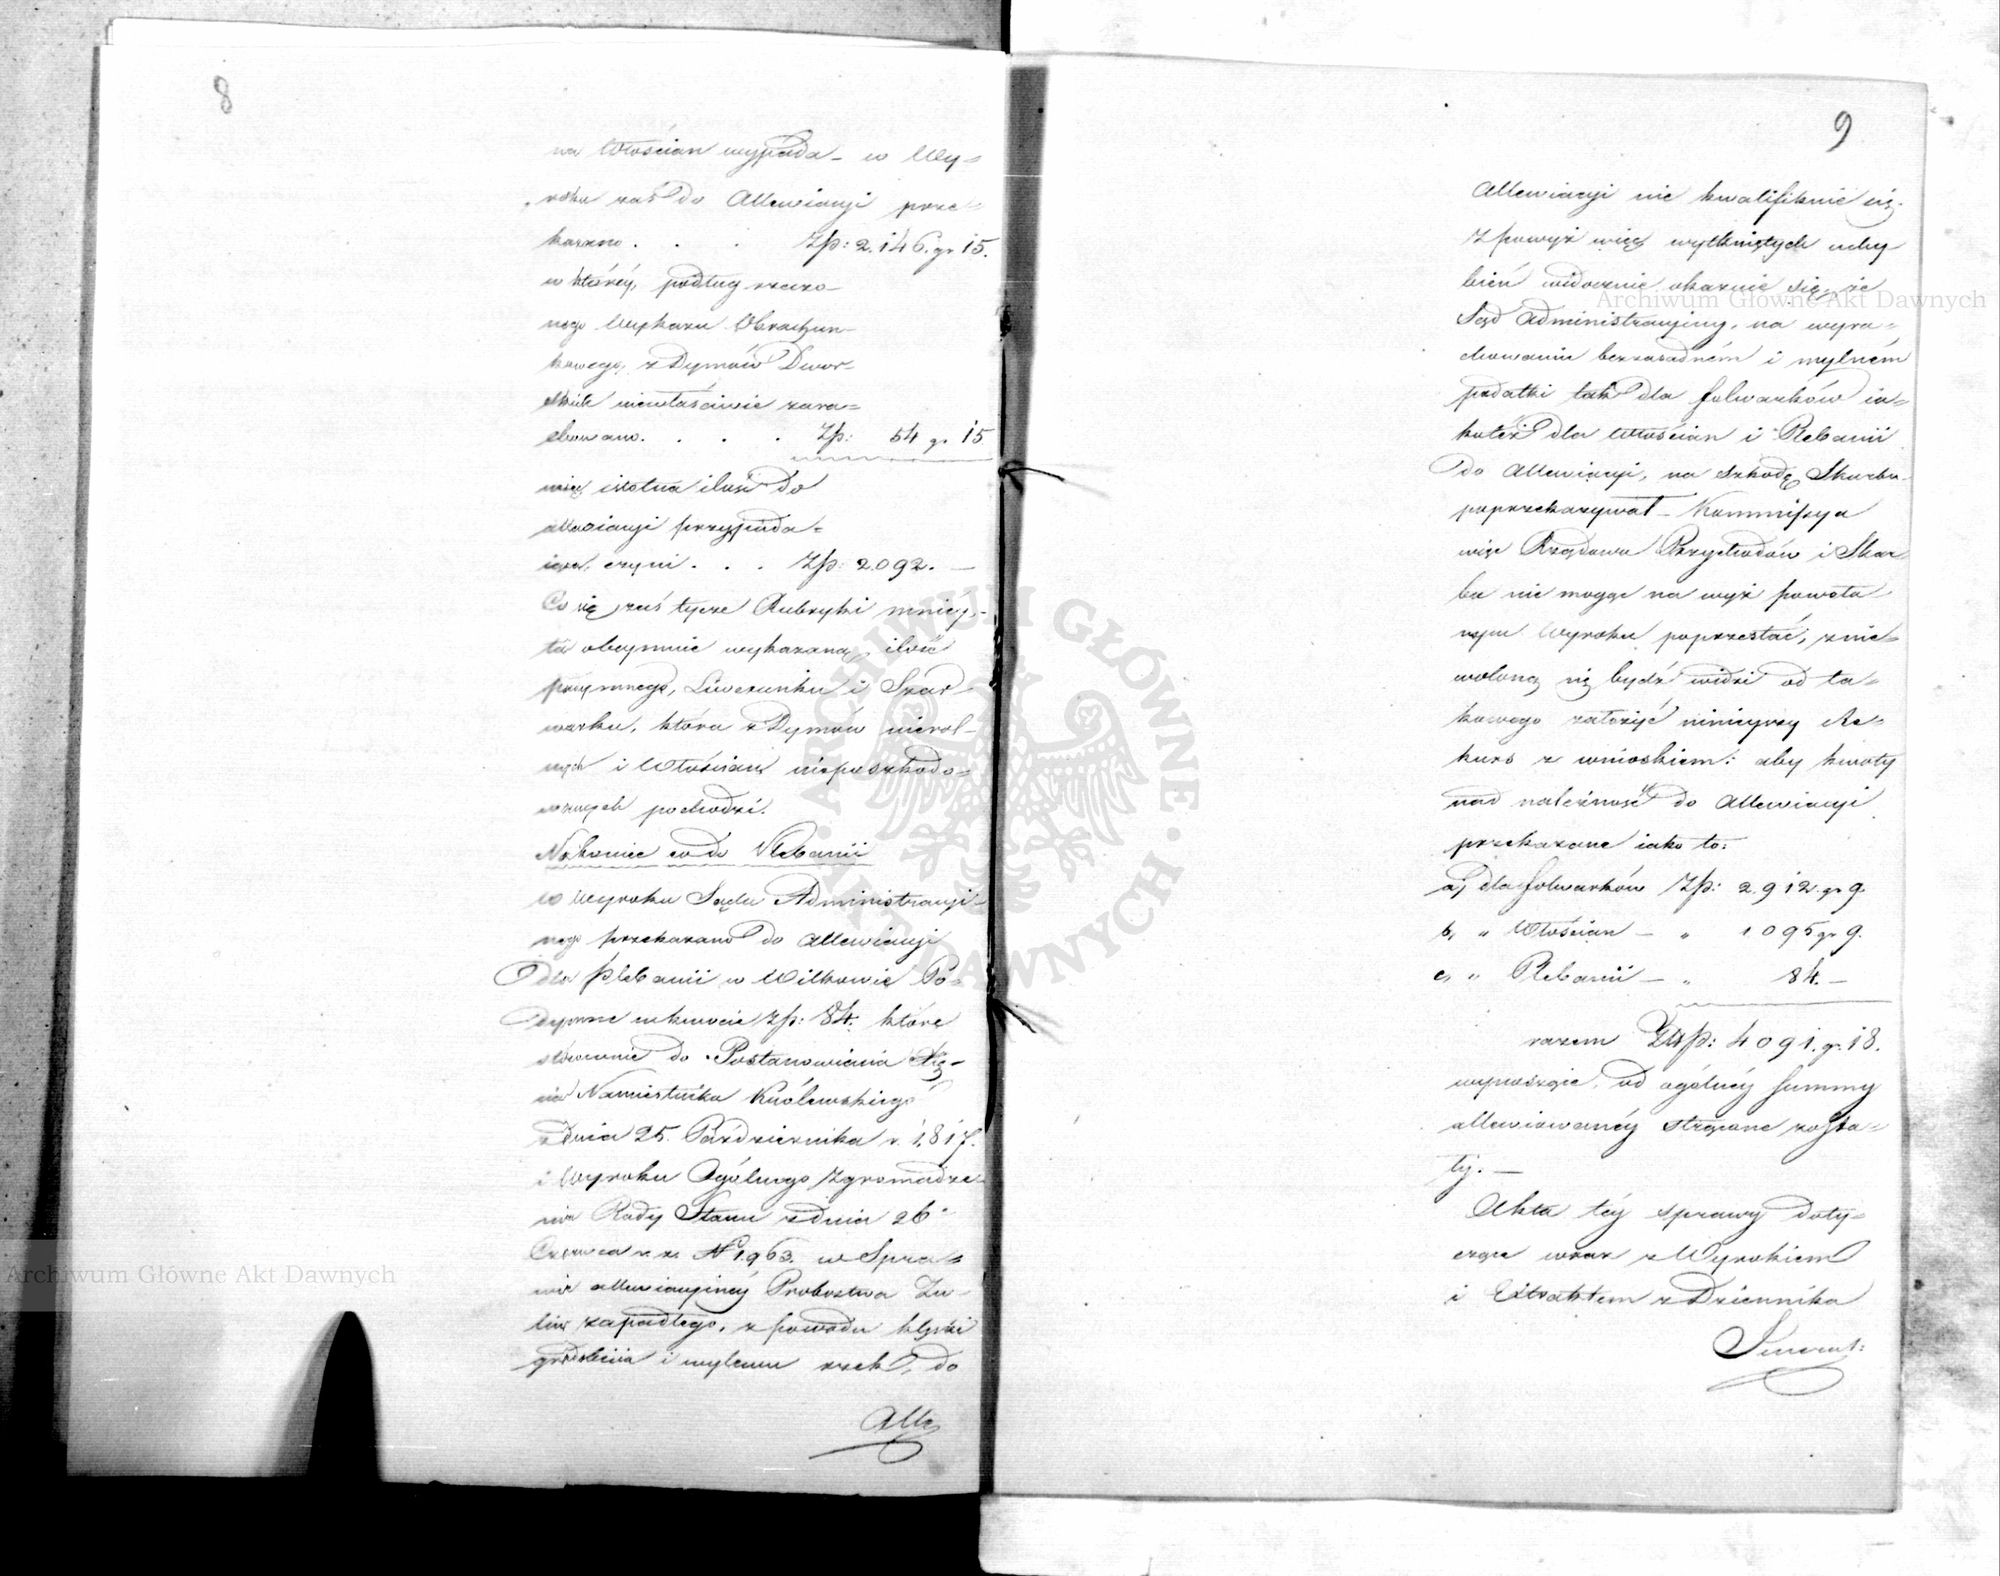 8
na Włościan wypada – w Wy=
roku zaś do Allewiacyi prze=
kazano . . . Zp: 2.146. gr 15.
w którey, podług rzeczo=
nego Wykazu Obrachun=
kowego, z Dymów Dwor=
skich niewłaściwie zara=
chowano. . . . Zp: 54 gr 15
więc istotna ilość do
allewiacyi przypada=
iąca, czyni . . . Zp: 2092. —
Co się zaś tycze Rubryki mniey,=
ta obeymuie wykazaną ilość
podymnego, Liwerunku i Szar=
warku, która z Dymów nierol=
nych i Włościan nieposzkodo=
wanych pochodzi.
Nakoniec co do Plebanii
w Wyroku Sądu Administracyi=
nego przekazano do allewiacyi
dla Plebanii w Wilkowie Po=
dymne w kwocie Zp: 84. które
stosownie do Postanowienia Xię=
cia Namiestnika Królewskiego
z dnia 25. Października r. 1817.
i Wyroku Ogólnego Zgromadze=
nia Rady Stanu z dnia 26º
Czerwca r. z. Nº 1963. w Spra=
wie allewiacyiney Probostwa Zu=
lin zapadłego, z powodu klęski
gradobicia i wylewu rzek, do
Alle
9
Allewiacyi nie kwalifikuie się.
Z powyż więc wytkniętych uchy
bień widocznie okazuie się, że
Sąd Administracyiny, na wyra=
chowaniu bezzasadném i mylném
podatki tak dla folwarków ia=
koteż dla Włościan i Plebanii
do Allewiacyi, na szkodę Skarbu
poprzekazywał – Kommissya
więc Rządowa Przychodów i Skar
bu nie mogąc na wyż powoła
nym Wyroku poprzestać, znie=
woloną się bydź widzi od ta=
kowego założyć ninieyszy Re=
kurs z wnioskiem: aby kwoty
nad należność do Allewiacyi
przekazane iako to:
a, dla folwarków Zp: 2.912. gr 9.
b, " Włościan – " 1095 gr 9.
c, " Plebanii – " 84. –
razem Złp: 4091. gr. 18.
wynoszące, od ogólney summy
allewiowaney strącone zosta=
ły. —
Akta tey sprawy doty=
czące wraz z Wyrokiem
i Extraktem z Dziennika
Archiwum Główne Akt Dawnych
Archiwum Główne Akt Dawnych
ARCHIWUM GŁÓWNE AKT DAWNYCH